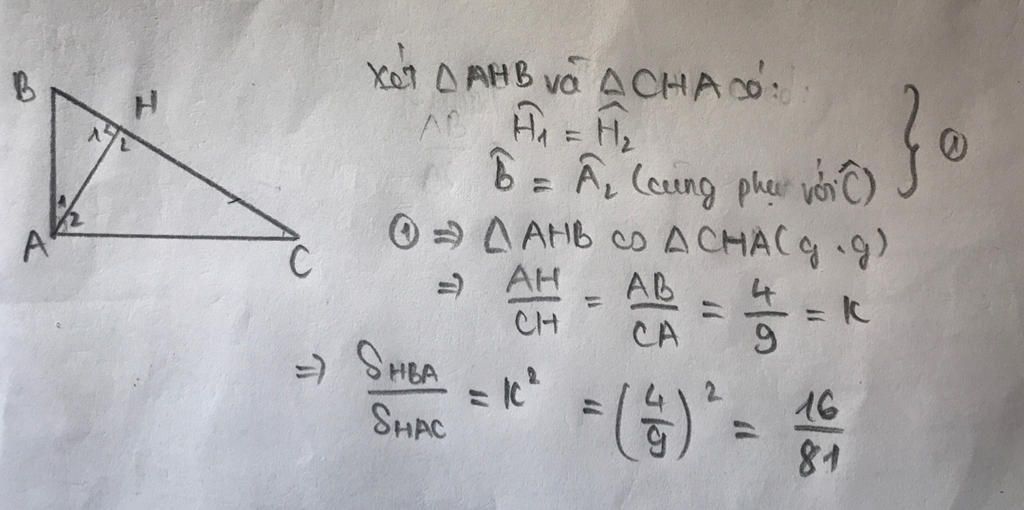 B
H
1
2
1
2
A
C
Xét ΔAHB và ΔCHA có:
AB
Ĥ₁ = Ĥ₂
B̂ = Â₂ (cùng phụ với Ĉ)
} ①
① ⇒ ΔAHB ∽ ΔCHA (g.g)
⇒ AH/CH = AB/CA = 4/9 = K
⇒ S_HBA/S_HAC = K² = (4/9)² = 16/81